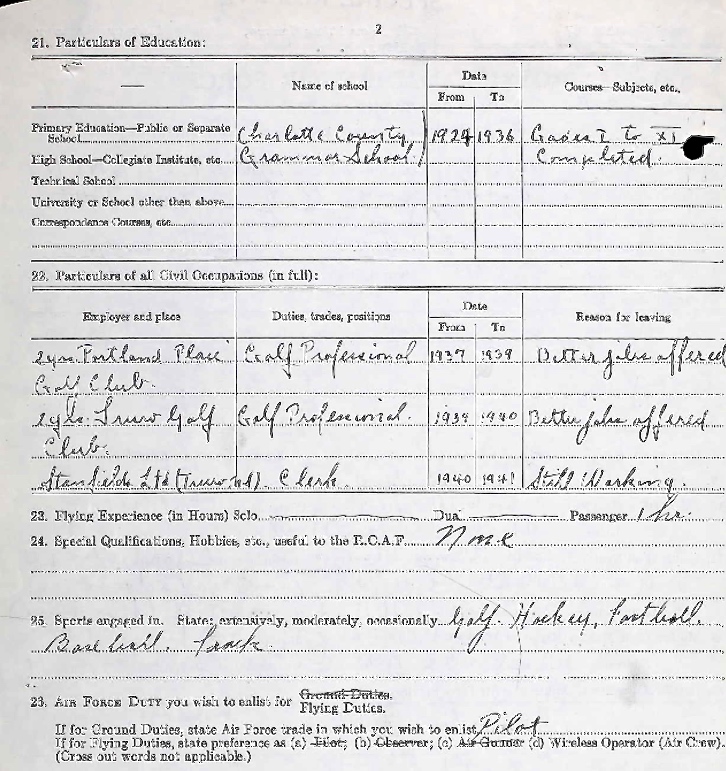 2
21. Particulars of Education:
Name of school
Date
From To
Courses—Subjects, etc.,
Primary Education—Public or Separate
School
Charlotte County
1924 1936
Grades I to XI
High School—Collegiate Institute, etc.
Grammar School
Completed.
Technical School
University or School other than above
Correspondence Courses, etc.
22. Particulars of all Civil Occupations (in full):
Employer and place
Duties, trades, positions
Date
From To
Reason for leaving
Portland Place Golf Professional 1937 1939 Better jobs offered
Golf Club.
Truro Golf Golf Professional. 1939 1940 Better jobs offered
Club.
Stanfields Ltd (Truro NS). Clerk. 1940 1941 Still Working.
23. Flying Experience (in Hours) Solo Dual Passenger 1 hr.
24. Special Qualifications, Hobbies, etc., useful to the R.C.A.F. None
25. Sports engaged in. State: extensively, moderately, occasionally Golf. Hockey, Football.
Baseball. Track.
AIR FORCE DUTY you wish to enlist for Ground Duties.
Flying Duties.
If for Ground Duties, state Air Force trade in which you wish to enlist Pilot
If for Flying Duties, state preference as (a) Pilot; (b) Observer; (c) Air Gunner (d) Wireless Operator (Air Crew).
(Cross out words not applicable.)